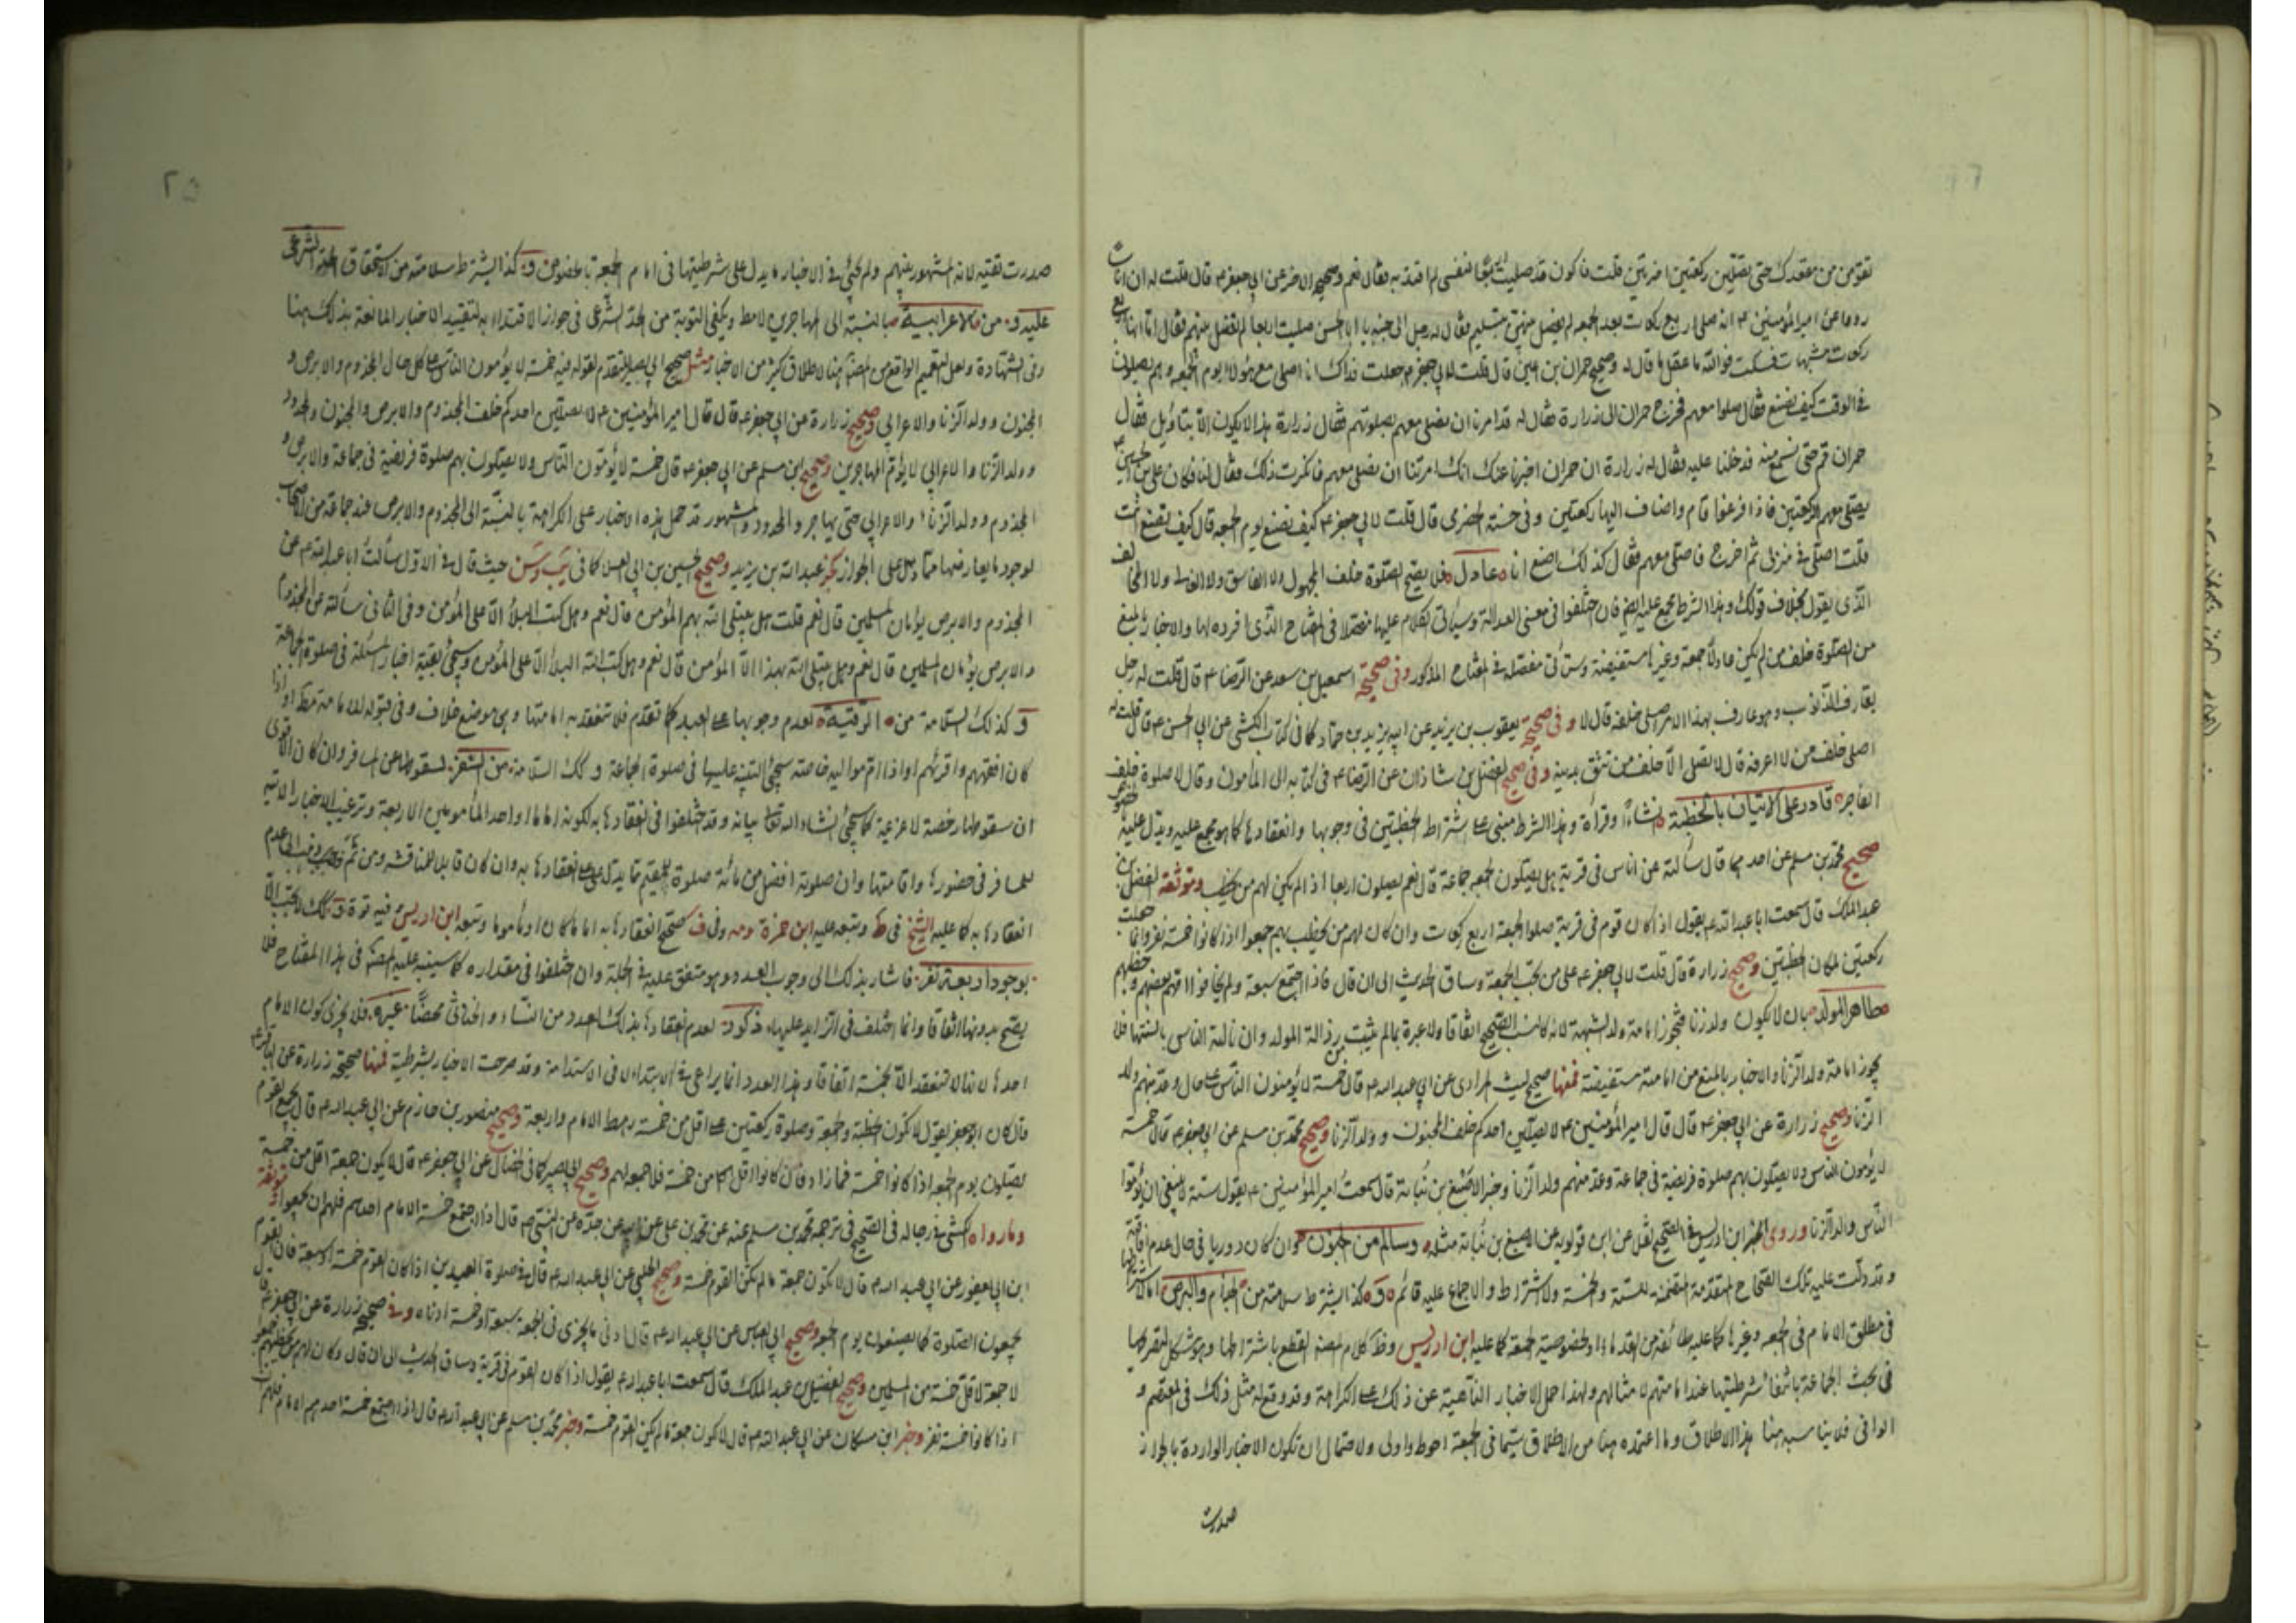 تقومن من مقعدك حتى تصلين ركعتين اخريتين قلت فاكون قد صليت اربعا لنفسي لم اقتد به فقال نعم وصحيحه الاخر عن ابي جعفر ع قال قلت له ان اناسا
رووا عن امير المؤمنين ع انه صلى اربع ركعات بعد الجمعه لم يفصل بينهن بتسليم فقال له رجل الى جنبه يا ابا الحسن صليت اربعا لم تفصل بينهم فقال اما انها اربع
ركعات مشبهات فسكت فوالله ما عقل ما قال له وصحيح حمران بن اعين قال قلت لابي جعفر ع جعلت فداك انا نصلي مع هؤلاء يوم الجمعه وهم يصلون
في الوقت كيف نصنع فقال صلوا معهم فخرج حمران الى زرارة فقال له قد امرنا ان نصلي معهم بصلوتهم فقال زرارة هذا لا يكون الا بتاويل فقال
حمران قم حتى نسمع منه فدخلنا عليه فقال له زرارة ان حمران اخبرنا عنك انك امرتنا ان نصلي معهم فانكرت ذلك فقال لنا فكان علي بن الحسين
يصلي معهم الركعتين فاذا فرغوا قام واضاف اليها ركعتين وفي حسنة الحضرمي قال قلت لابي جعفر ع كيف نصنع يوم الجمعه قال كيف تصنع انت
قلت اصلي في منزلي ثم اخرج فاصلي معهم فقال كذلك اصنع انا عادل فلا يصح الصلوة خلف المجهول ولا الفاسق ولا الغالي ولا المخالف
الذي يقول بخلاف قولك وهذا الشرط مجمع عليه وان اختلفوا في معنى العدالة وسياتي الكلام عليها مفصلا في المفتاح الذي افرده لها والاخبار بالمنع
من الصلوة خلف من لم يكن عادلا جمعة وغيرها مستفيضة وستاتي مفصلة في المفتاح المذكور وفي صحيحة اسمعيل بن سعد عن الرضا ع قال قلت له رجل
يقارف الذنوب وهو عارف بهذا الامر اصلي خلفه قال لا وفي صحيحة يعقوب بن يزيد عن ابيه يزيد بن حماد كما في كتاب الكشي عن ابي الحسن ع قال قلت له
اصلي خلف من لا اعرفه قال لا تصل الا خلف من تثق بدينه وفي صحيح الفضل بن شاذان عن الرضا ع في كتابه الى المأمون وقال لا صلوة خلف
الفاجر قادر على الاتيان بالخطبة انشاءً او قراءة وهذا الشرط مبني على اشتراط الخطبتين في وجوبها وانعقادها كما هو مجمع عليه ويدل عليه
صحيح محمد بن مسلم عن احدهما قال سألته عن اناس في قرية هل يصلون الجمعه جماعة قال نعم يصلون اربعا اذا لم يكن لهم من يخطب وموثقة الفضل بن
عبد الملك قال سمعت ابا عبد الله ع يقول اذا كان قوم في قرية صلوا الجمعة اربع ركعات وان كان لهم من يخطب بهم جمعوا اذا كانوا خمسة نفر وانما جعلت
ركعتين لمكان الخطبتين وصحيح زرارة قال قلت لابي جعفر ع على من تجب الجمعة وساق الحديث الى ان قال فاذا اجتمع سبعة ولم يخافوا امهم بعضهم وخطبهم
طاهر المولد بان لا يكون ولد زنا فتجوز امامة ولد الشبهة لانه كالنسب الصحيح اتفاقا ولا عبرة بما لم يثبت من رذالة المولد وان نالته الناس بالسنتها فلا
يجوز امامة ولد الزنا والاخبار بالمنع من امامته مستفيضة فمنها صحيح ليث المرادي عن ابي عبد الله ع قال خمسة لا يؤمنون الناس على حال وعد منهم ولد
الزنا وصحيح زرارة عن ابي جعفر ع قال قال امير المؤمنين ع لا يصلين احدكم خلف المجنون وولد الزنا وصحيح محمد بن مسلم عن ابي جعفر ع قال خمسة
لا يؤمون الناس ولا يصلون بهم صلوة فريضة في جماعة وعد منهم ولد الزنا وخبر الاصبغ بن نباتة قال سمعت امير المؤمنين ع يقول ستة لا ينبغي ان يؤموا
الناس ولد الزنا وروى ابن ادريس في الصحيح نقل عن ابن قولويه عن الاصبغ بن نباتة مثله وسالم من الجنون وان كان دوريا في حال عدم افاقته
وقد دلت عليه تلك الصحاح المتقدمة المتضمنة للستة والخمسة والاشتراط والاجماع عليه قائم وكذا يشترط سلامته من الجذام والبرص اما لاشتراطهما
في مطلق الامام في الجمعه وغيرها كما عليه طائفة من القدماء او لخصوصية الجمعة كما عليه ابن ادريس وظ كلام المصنف القطع باشتراطهما وهو مشكل لتصريحه
في بحث الجماعة بانتفاء شرطيتها عند امامتهم لامثالهم ولهذا حمل الاخبار الناهية عن ذلك على الكراهة وقد وقع له مثل ذلك في المعتصم و
الوافي فلا يناسبه هنا هذا الاطلاق وما اعتمده هنا من الاطلاق سيما في الجمعة احوط واولى ولاحتمال ان تكون الاخبار الواردة بالجواز
صدرت
٢٥
صدرت تقية لانه المشهور بينهم ولم يجئ في الاخبار ما يدل على شرطيتها في امام الجمعة بالخصوص وكذا يشترط سلامته من استحقاق الحد الشرعي
عليه و من الاعرابية بالنسبة الى المهاجرين لا مط ويكفي التوبة من الحد الشرعي في جواز الاقتداء به لتقييد الاخبار المانعة بذلك هنا
وفي الشهادة ولعل التعميم الواقع من المصنف هنا لاطلاق كثير من الاخبار مثل صحيح ابي بصير المتقدم لقوله فيه خمسة لا يؤمون الناس على كل حال المجذوم والابرص و
المجنون وولد الزنا والاعرابي وصحيح زرارة عن ابي جعفر ع قال قال امير المؤمنين ع لا يصلين احدكم خلف المجذوم والابرص والمجنون والمحدود
وولد الزنا والاعرابي لا يؤم المهاجرين وصحيح ابن مسلم عن ابي جعفر ع قال خمسة لا يؤمون الناس ولا يصلون بهم صلوة فريضة في جماعة والابرص و
المجذوم وولد الزنا والاعرابي حتى يهاجر والمحدود والمشهور قد حمل هذه الاخبار على الكراهة بالنسبة الى المجذوم والابرص عند جماعة من الاصحاب
لوجود ما يعارضها مما دل على الجواز كخبر عبد الله بن يزيد وصحيح الحسين بن ابي العلا كما في يب وسن حيث قال في الاول سألت ابا عبد الله ع عن
المجذوم والابرص يؤمان المسلمين قال نعم قلت هل يبتلى الله بهم المؤمن قال نعم وهل كتب البلاء الا على المؤمن وفي الثاني سألته عن المجذوم
والابرص يؤمان المسلمين قال نعم وهل يبتلي الله بهذا الا المؤمن قال نعم وهل كتب الله البلاء الا على المؤمن وسيجئ بقية اخبار المسئلة في صلوة الجماعة
وكذلك السلامة من الرقية لعدم وجوبها على العبد كما تقدم فلا تنعقد به امامتها وهي موضع خلاف وفي قبوله للامامة مط او اذا
كان افقههم واقرئهم او اذا ام مواليه خاصة سيجئ التنبيه عليها في صلوة الجماعة وكك السلامة من السفر لسقوطها عن المسافر وان كان الاقوى
ان سقوطها رخصة لا عزيمة كما سيجئ انشاء الله تعالى بيانه وقد اختلفوا في انعقادها به لكونه اماما او احد المأمومين الاربعة وترغيب الاخبار الاتية
للمسافر في حضورها واقامتها وان صلوته افضل من مائة صلوة للمقيم مما يدل على انعقادها به وان كان قابلا للمناقشة ومن ثم ذهب الى عدم
انعقادها به كما عليه الشيخ في ط وتبعه عليه ابن حمزة ومه وفي ف صحح انعقادها به اماما كان او مأموما وتبعه ابن ادريس فيه قوة وكك لا تجب الا
بوجود اربعة نفر فاشار بذلك الى وجوب العدد وهو متفق عليه في الجملة وان اختلفوا في مقداره كما سينبه عليه المصنف في هذا المفتاح فلا
يصح بدونها اتفاقا وانما اختلف في الزايد عليها ذكورة لعدم انعقادها بذلك العدد من النساء والخناثى محضًا غيره فلا يجزي كون الامام
احدها لانها لا تنعقد الا بخمسة اتفاقا وهذا العدد انما يراعى في الابتداء لا في الاستدامة وقد صرحت الاخبار بشرطية فمنها صحيحة زرارة عن الباقر ع
قال كان ابو جعفر يقول لا تكون الخطبة والجمعة وصلوة ركعتين على اقل من خمسة رهط الامام واربعة وصحيح منصور بن حازم عن ابي عبد الله ع قال يجمع القوم
يصلون يوم الجمعه اذا كانوا خمسة فما زاد فان كانوا اقل من خمسة فلا جمعه لهم وصحيح ابي بصير كما في الخصال عن ابي جعفر ع قال لا يكون جمعة اقل من خمسة
وما رواه الكشي في رجاله في الصحيح في ترجمة محمد بن مسلم عنه عن محمد بن علي عن ابيه عن جده عن النبي ص قال اذا اجتمع خمسة الامام احدهم فلهم ان يجمعوا وموثقة
ابن ابي يعفور عن ابي عبد الله ع قال لا تكون جمعة ما لم يكن القوم خمسة وصحيح الحلبي عن ابي عبد الله ع قال في صلوة العيدين اذا كان القوم خمسة او سبعة فانهم
يجمعون الصلوة كما يصنعون يوم الجمعه وصحيح ابي العباس عن ابي عبد الله ع قال ادنى ما يجزي في الجمعة سبعة او خمسة ادناه وفي صحيح زرارة عن ابي جعفر ع
لا جمعة لاقل خمسة من المسلمين وصحيح الفضل بن عبد الملك قال سمعت ابا عبد الله ع يقول اذا كان القوم في قرية وساق الحديث الى ان قال وكان لهم من يخطب بهم جمعوا
اذا كانوا خمسة نفر وخبر ابن مسكان عن ابي عبد الله ع قال لا تكون جمعة ما لم يكن القوم خمسة وخبر محمد بن مسلم عن ابي عبد الله ع قال اذا اجتمع خمسة احدهم الامام فلهم ان